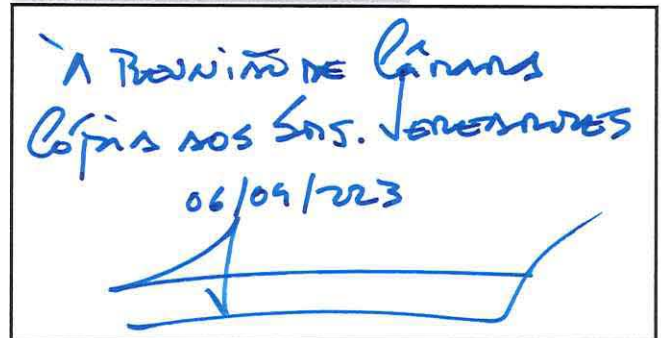 À REUNIÃO DE CÂMARA
CÓPIA AOS SRS. VEREADORES
06/09/2023